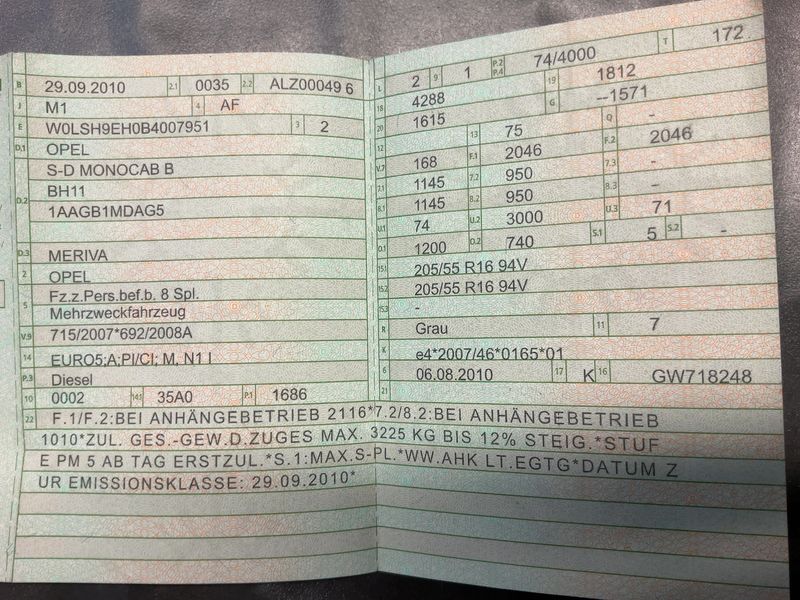 B 29.09.2010 2.1 0035 2.2 ALZ00049 6
J M1 4 AF
E W0LSH9EH0B4007951 3 2
D.1 OPEL
S-D MONOCAB B
D.2 BH11
1AAGB1MDAG5
D.3 MERIVA
2 OPEL
5 Fz.z.Pers.bef.b. 8 Spl.
Mehrzweckfahrzeug
V.9 715/2007*692/2008A
14 EURO5;A;PI/CI; M, N1 I
P.3 Diesel
10 0002 14.1 35A0 P.1 1686
L 2 9 1 P.2 P.4 74/4000 T 172
18 4288 19 1812
20 1615 G --1571
13 75 Q -
V.7 168 F.1 2046 F.2 2046
7.1 1145 7.2 950 7.3 -
8.1 1145 8.2 950 8.3 -
U.1 74 U.2 3000 U.3 71
O.1 1200 O.2 740 S.1 5 S.2 -
15.1 205/55 R16 94V
15.2 205/55 R16 94V
15.3 -
R Grau 11 7
K e4*2007/46*0165*01
6 06.08.2010 17 K 16 GW718248
21
22 F.1/F.2:BEI ANHÄNGEBETRIEB 2116*7.2/8.2:BEI ANHÄNGEBETRIEB
1010*ZUL. GES.-GEW.D.ZUGES MAX. 3225 KG BIS 12% STEIG.*STUF
E PM 5 AB TAG ERSTZUL.*S.1:MAX.S-PL.*WW.AHK LT.EGTG*DATUM Z
UR EMISSIONSKLASSE: 29.09.2010*